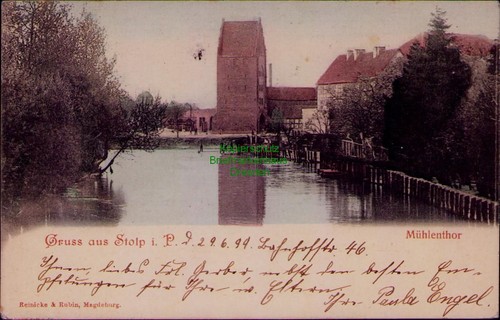 Gruss aus Stolp i. P. d. 29.6.99. Bahnhofstr. 46
Mühlenthor
Ihnen, liebes Frl. Gerber, nebst den besten Em-
pfehlungen für Ihre w. Eltern, Ihre Paula Engel.
Reinicke & Rubin, Magdeburg.